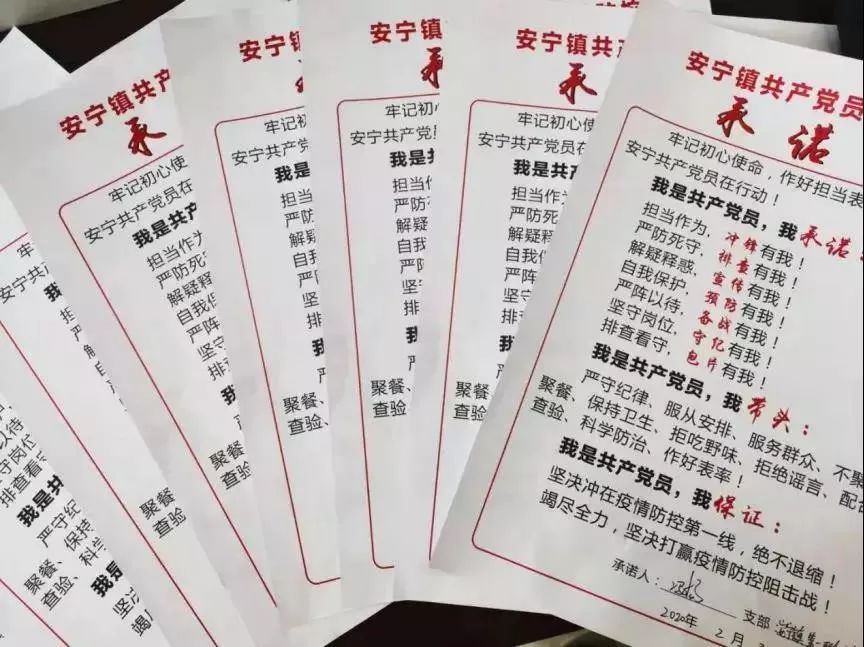 安宁共产
我是
担
严
解
阵以待
守岗位
排查看守
我是共
严守纪
聚餐、保持
查验、科学
我是
坚决
竭
安宁镇共产
承
牢记初心
安宁共产党员在
我是共产
担当作为
严防死守
解疑释
自我保
严阵以
坚守
排查
我
聚餐
查验
安宁镇共
牢记初心
安宁共产党
我是
担当
严防
解疑
自我
严
坚
排
聚餐
查验
安宁镇
承
牢记初
安宁共产党
我是共
担当作
严防死
解疑释
自我
严阵
坚守
排
我
聚餐、
查验、
安宁镇共产
承
牢记初心使
安宁共产党员
我是共产
担当作为
严防死守
解疑释
自我保
严阵以
坚守
排查
我是
严
聚餐、
查验、
安宁镇共产党员
承诺
牢记初心使命,作好担当表
安宁共产党员在行动!
我是共产党员,我承诺:
担当作为,冲锋有我!
严防死守,排查有我!
解疑释惑,宣传有我!
自我保护,预防有我!
严阵以待,备战有我!
坚守岗位,守亿有我!
排查看守,包片有我!
我是共产党员,我带头:
严守纪律、服从安排、服务群众、不聚
聚餐、保持卫生、拒吃野味、拒绝谣言、配合
查验、科学防治、作好表率!
我是共产党员,我保证:
坚决冲在疫情防控第一线,绝不退缩!
竭尽全力,坚决打赢疫情防控阻击战!
承诺人:
支部
2020年 2月